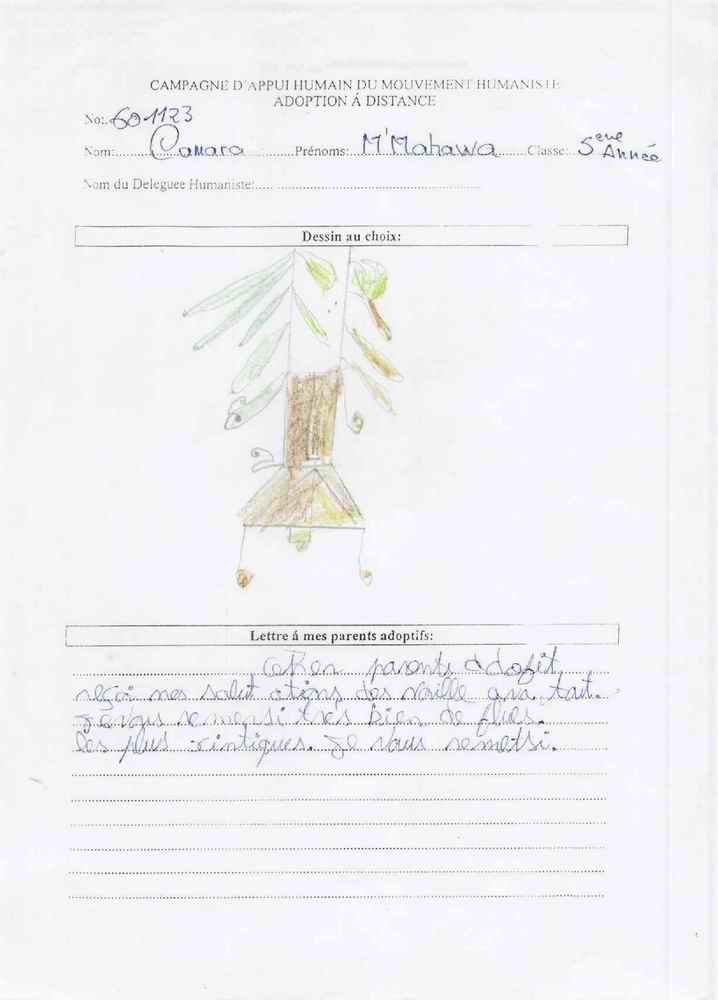 CAMPAGNE D'APPUI HUMAIN DU MOUVEMENT HUMANISTE
ADOPTION Á DISTANCE
No: 601123
Nom: Camara Prénoms: M'Mahawa Classe: 5eme Année
Nom du Deleguee Humaniste:
Dessin au choix:
Lettre á mes parents adoptifs:
parents adofit
reçoi mes salut ations des
je vous remersi tres bien de
les plus je vous